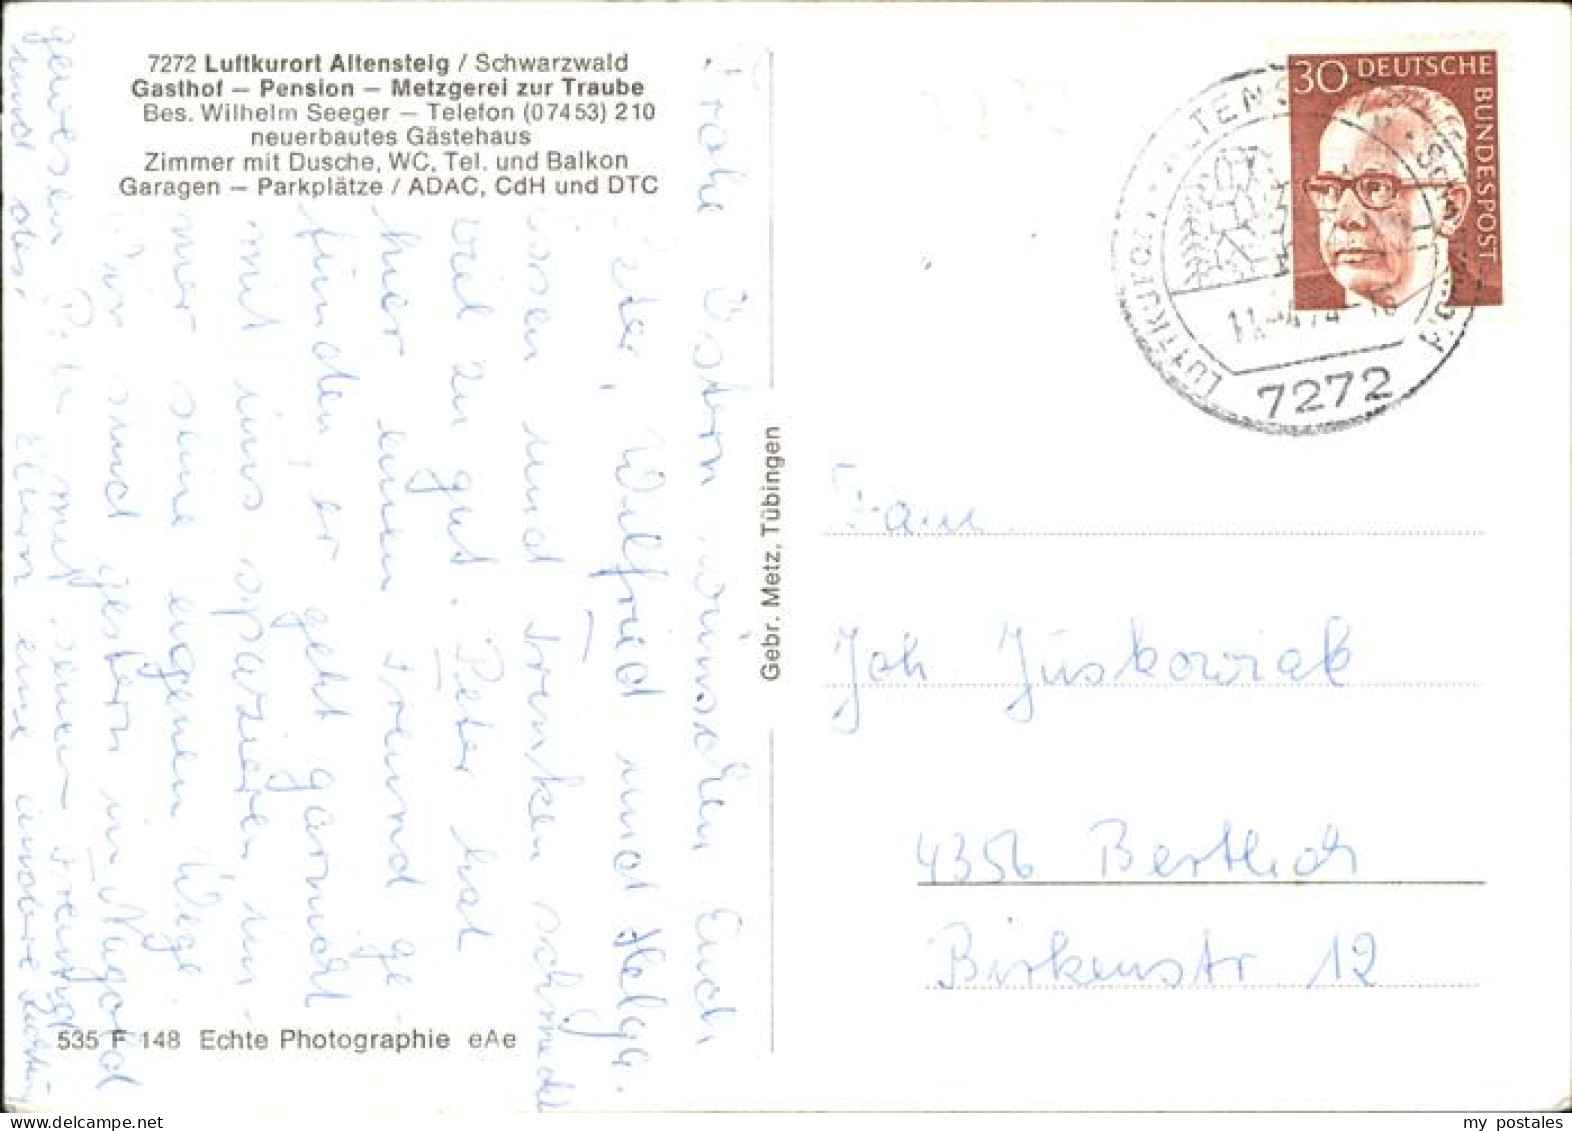 7272 Luftkurort Altensteig / Schwarzwald
Gasthof – Pension – Metzgerei zur Traube
Bes. Wilhelm Seeger – Telefon (07453) 210
neuerbautes Gästehaus
Zimmer mit Dusche, WC, Tel. und Balkon
Garagen – Parkplätze / ADAC, CdH und DTC
Frohe Ostern wünschen Euch
Peter, Wilfried und Helga.
Essen und trinken schmeckt
viel zu gut. Peter hat
hier einen Freund ge-
funden, er geht garnicht
mit uns spazieren, im-
mer seine eigenen Wege.
Wir sind gestern in Nagold
gewesen Peter mit seinem Freund
und des. Eltern eine
535 F 148 Echte Photographie eAe
Gebr. Metz, Tübingen
30 DEUTSCHE
BUNDESPOST
LUFTKURORT ALTENSTEIG
7272
Fam.
Joh Juskowiak
4356 Bertlich
Birkenstr 12
my postales